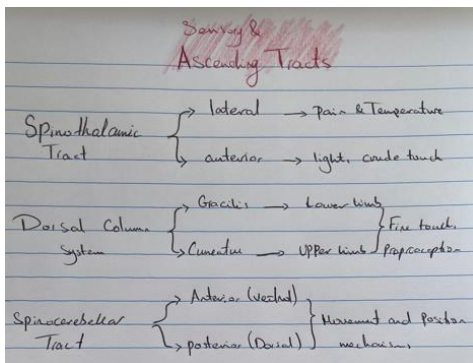 Sensory &
Ascending Tracts
Spinothalamic Tract
lateral → Pain & Temperature
anterior → light, crude touch
Dorsal Column System
Gracilis → Lower limb
Cuneatus → Upper limb
Fine touch, Proprioception
Spinocerebellar Tract
Anterior (Ventral)
posterior (Dorsal)
Movement and Position mechanisms